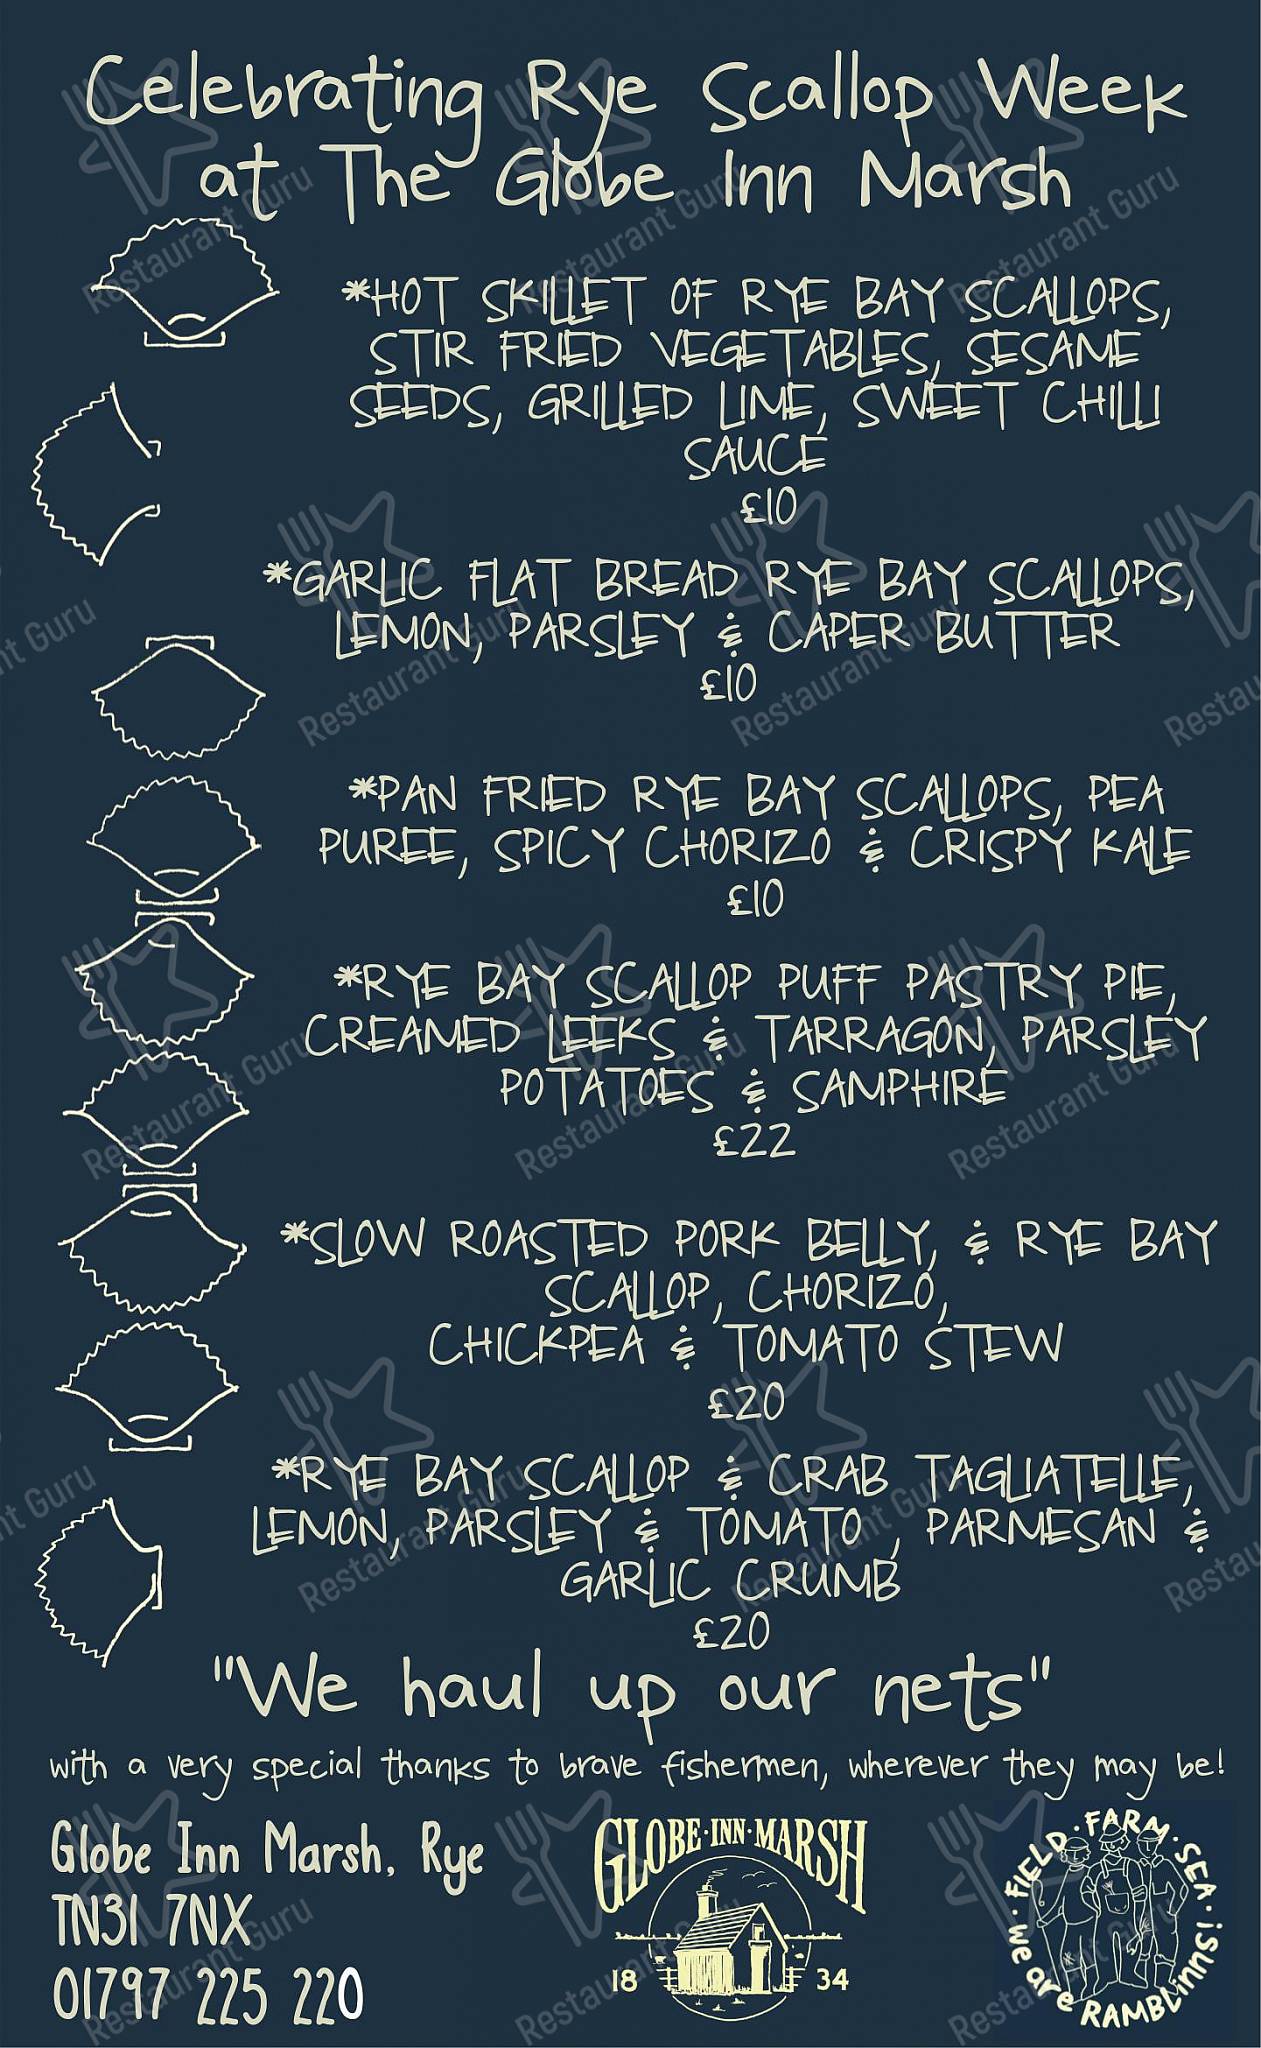 Celebrating Rye Scallop Week
at The Globe Inn Marsh
*HOT SKILLET OF RYE BAY SCALLOPS,
STIR FRIED VEGETABLES, SESAME
SEEDS, GRILLED LIME, SWEET CHILLI
SAUCE
£10
*GARLIC FLAT BREAD RYE BAY SCALLOPS,
LEMON, PARSLEY & CAPER BUTTER
£10
*PAN FRIED RYE BAY SCALLOPS, PEA
PUREE, SPICY CHORIZO & CRISPY KALE
£10
*RYE BAY SCALLOP PUFF PASTRY PIE,
CREAMED LEEKS & TARRAGON, PARSLEY
POTATOES & SAMPHIRE
£22
*SLOW ROASTED PORK BELLY, & RYE BAY
SCALLOP, CHORIZO,
CHICKPEA & TOMATO STEW
£20
*RYE BAY SCALLOP & CRAB TAGLIATELLE,
LEMON, PARSLEY & TOMATO , PARMESAN &
GARLIC CRUMB
£20
"We haul up our nets"
with a very special thanks to brave fishermen, wherever they may be!
Globe Inn Marsh, Rye
TN31 7NX
01797 225 220
GLOBE·INN·MARSH
18 34
·FIELD·FARM·SEA·
we are RAMBLinns!
Restaurant Guru